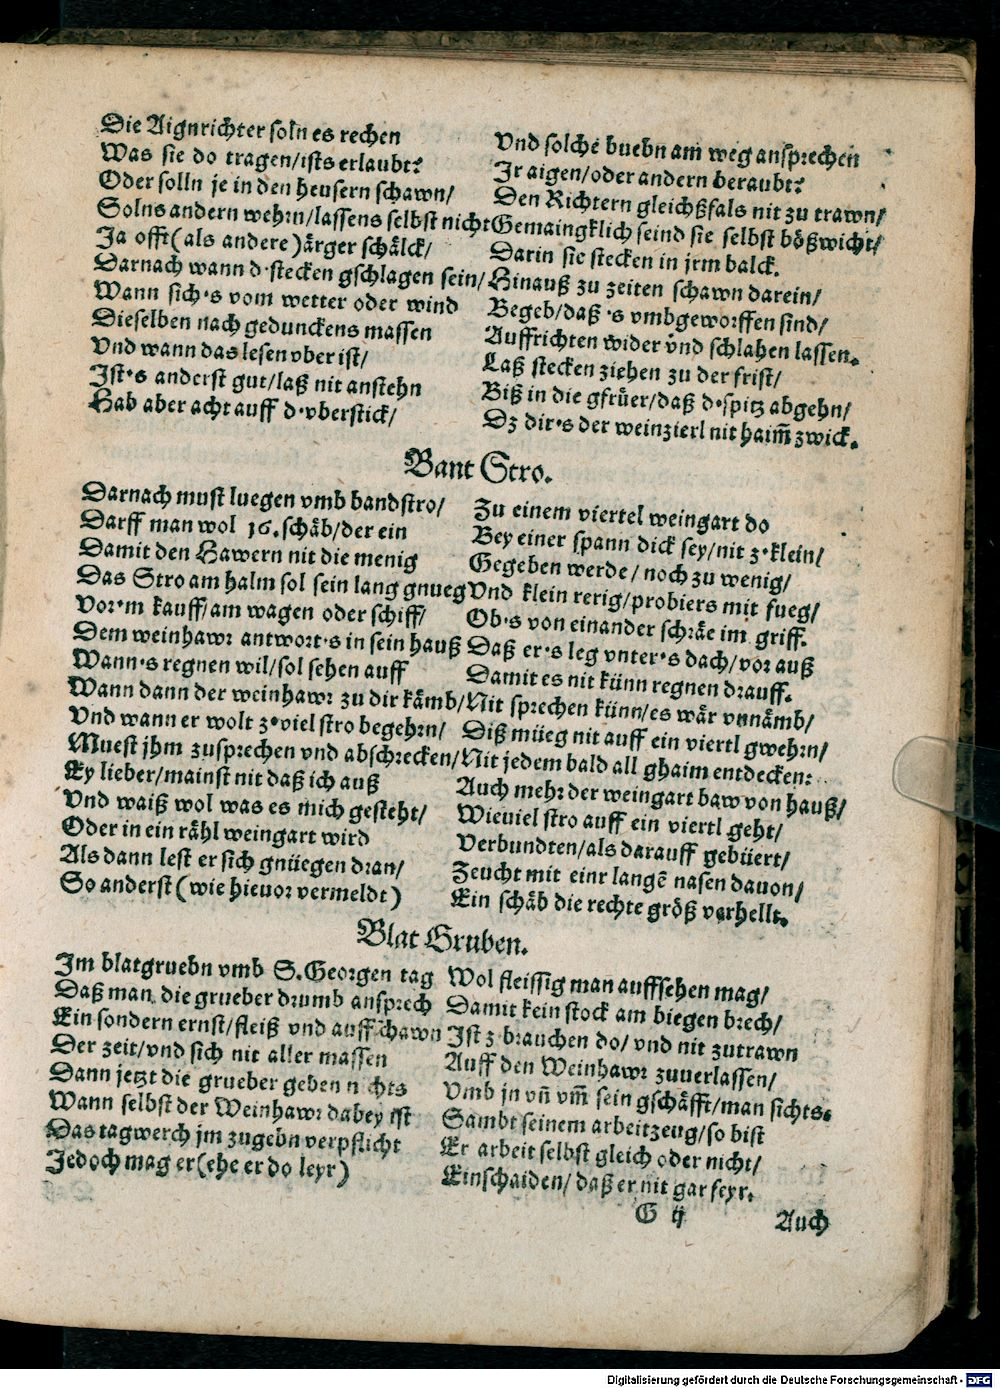 Die Aignrichter soln es rechen Vnd solche buebn am weg ansprechen
Was sie do tragen/ists erlaubt? Jr aigen/oder andern beraubt?
Oder solln je in den heusern schawn/ Den Richtern gleichßfals nit zu trawn/
Solns andern wehrn/lassens selbst nicht Gemaingklich seind sie selbst bößwicht/
Ja offt (als andere) ärger schälck/ Darin sie stecken in jrm balck.
Darnach wann d·stecken gschlagen sein/ Hinauß zu zeiten schawn darein/
Wann sich·s vom wetter oder wind Begeb/daß ·s vmbgeworffen sind/
Dieselben nach gedunckens massen Auffrichten wider vnd schlahen lassen.
Vnd wann das lesen vber ist/ Laß stecken ziehen zu der frist/
Jst·s anderst gut/laß nit anstehn Biß in die gfrüer/daß d·spitz abgehn/
Hab aber acht auff d·vberstick/ Dz dir·s der weinzierl nit haim̄ zwick.
Bant Stro.
Darnach must luegen vmb bandstro/ Zu einem viertel weingart do
Darff man wol 16. schäb/der ein Bey einer spann dick sey/nit z·klein/
Damit den Hawern nit die menig Gegeben werde/noch zu wenig/
Das Stro am halm sol sein lang gnueg Vnd klein rerig/probiers mit fueg/
Vor·m kauff/am wagen oder schiff/ Ob·s von einander schräe im griff.
Dem weinhawr antwort·s in sein hauß Daß er·s leg vnter·s dach/vor auß
Wann·s regnen wil/sol sehen auff Damit es nit künn regnen drauff.
Wann dann der weinhawr zu dir kämb/ Nit sprechen künn/es wär vnnämb/
Vnd wann er wolt z·viel stro begehrn/ Diß müeg nit auff ein viertl gwehrn/
Muest jhm zusprechen vnd abschrecken/ Nit jedem bald all ghaim entdecken:
Ey lieber/mainst nit daß ich auß Auch mehr der weingart baw von hauß/
Vnd waiß wol was es mich gesteht/ Wieuiel stro auff ein viertl geht/
Oder in ein rähl weingart wird Verbundten/als darauff gebüert/
Als dann lest er sich gnüegen dran/ Zeucht mit einr langē nasen dauon/
So anderst (wie hieuor vermeldt) Ein schäb die rechte größ verhellt.
Blat Gruben.
Jm blatgruebn vmb S. Georgen tag Wol fleissig man auffsehen mag/
Daß man die grueber drumb ansprech Damit kein stock am biegen brech/
Ein sondern ernst/fleiß vnd auffschawn Jst z·brauchen do/vnd nit zutrawn
Der zeit/vnd sich nit aller massen Auff den Weinhawr zuuerlassen/
Dann jetzt die grueber geben nichts Vmb jn vn̄ vm̄ sein gschäfft/man sichts.
Wann selbst der Weinhawr dabey ist Sambt seinem arbeitzeug/so bist
Das tagwerch jm zugebn verpflicht Er arbeit selbst gleich oder nicht/
Jedoch mag er (ehe er do leyr) Einschaiden/daß er nit gar feyr.
G ij Auch
Digitalisierung gefördert durch die Deutsche Forschungsgemeinschaft - DFG